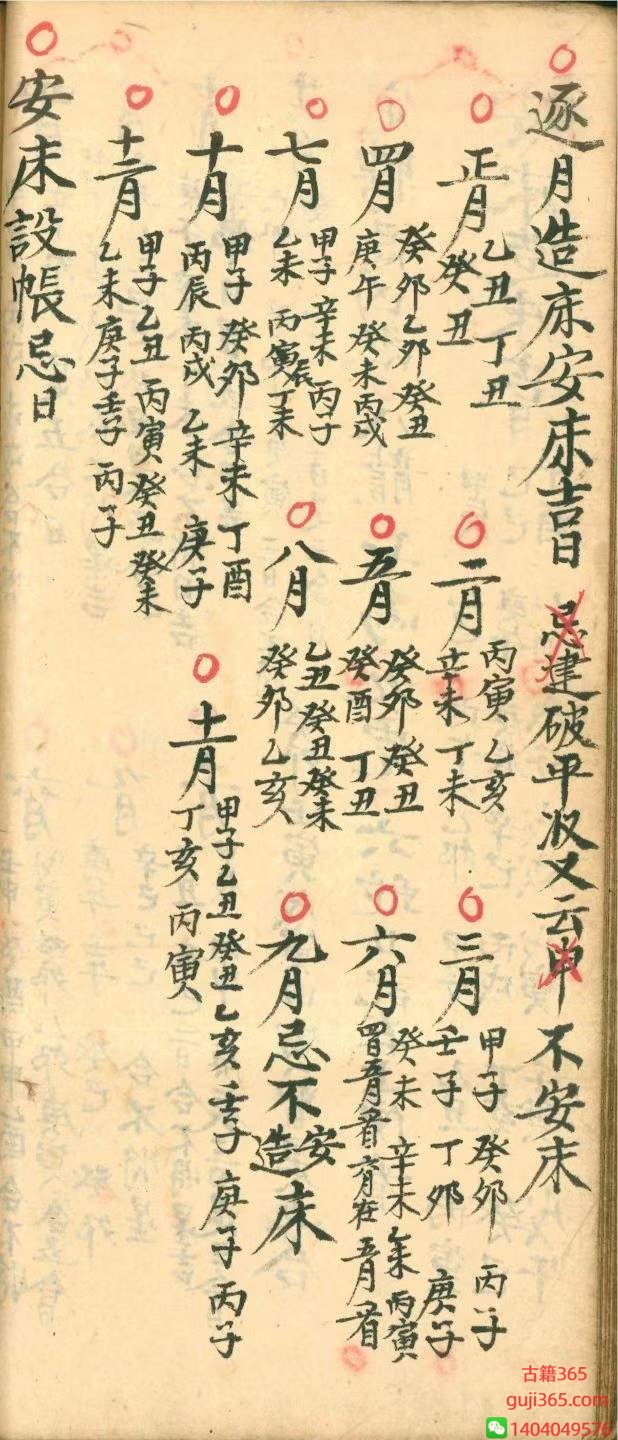 逐月造床安床吉日 忌建破平收又云申不安床
正月 乙丑 丁丑
癸丑
二月 丙寅 乙亥
辛未 丁未
三月 甲子 癸卯 丙子
壬子 丁卯 庚子
四月 癸卯 乙卯 癸丑
庚午 癸未 丙戌
五月 癸卯 癸丑
癸酉 丁丑
六月 癸未 辛未 乙未 丙寅
七月 甲子 辛未 丙子
乙未 丙寅 丁未
八月 乙丑 癸丑 癸未
癸卯 乙亥
九月忌不安造床
十月 甲子 癸卯 辛未 丁酉
丙辰 丙戌 乙未 庚子
十一月 甲子 乙丑 癸丑 乙亥 壬子 庚子 丙子
丁亥 丙寅
十二月 甲子 乙丑 丙寅 癸丑 癸未
乙未 庚子 壬子 丙子
安床設帳忌日
古籍365
guji365.com
1404049576